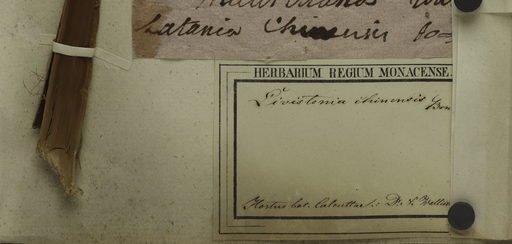 Latania chinensis
HERBARIUM REGIUM MONACENSE.
Livistonia chinensis
Hortus bot. Calcuttae: Dr. N. Wallich